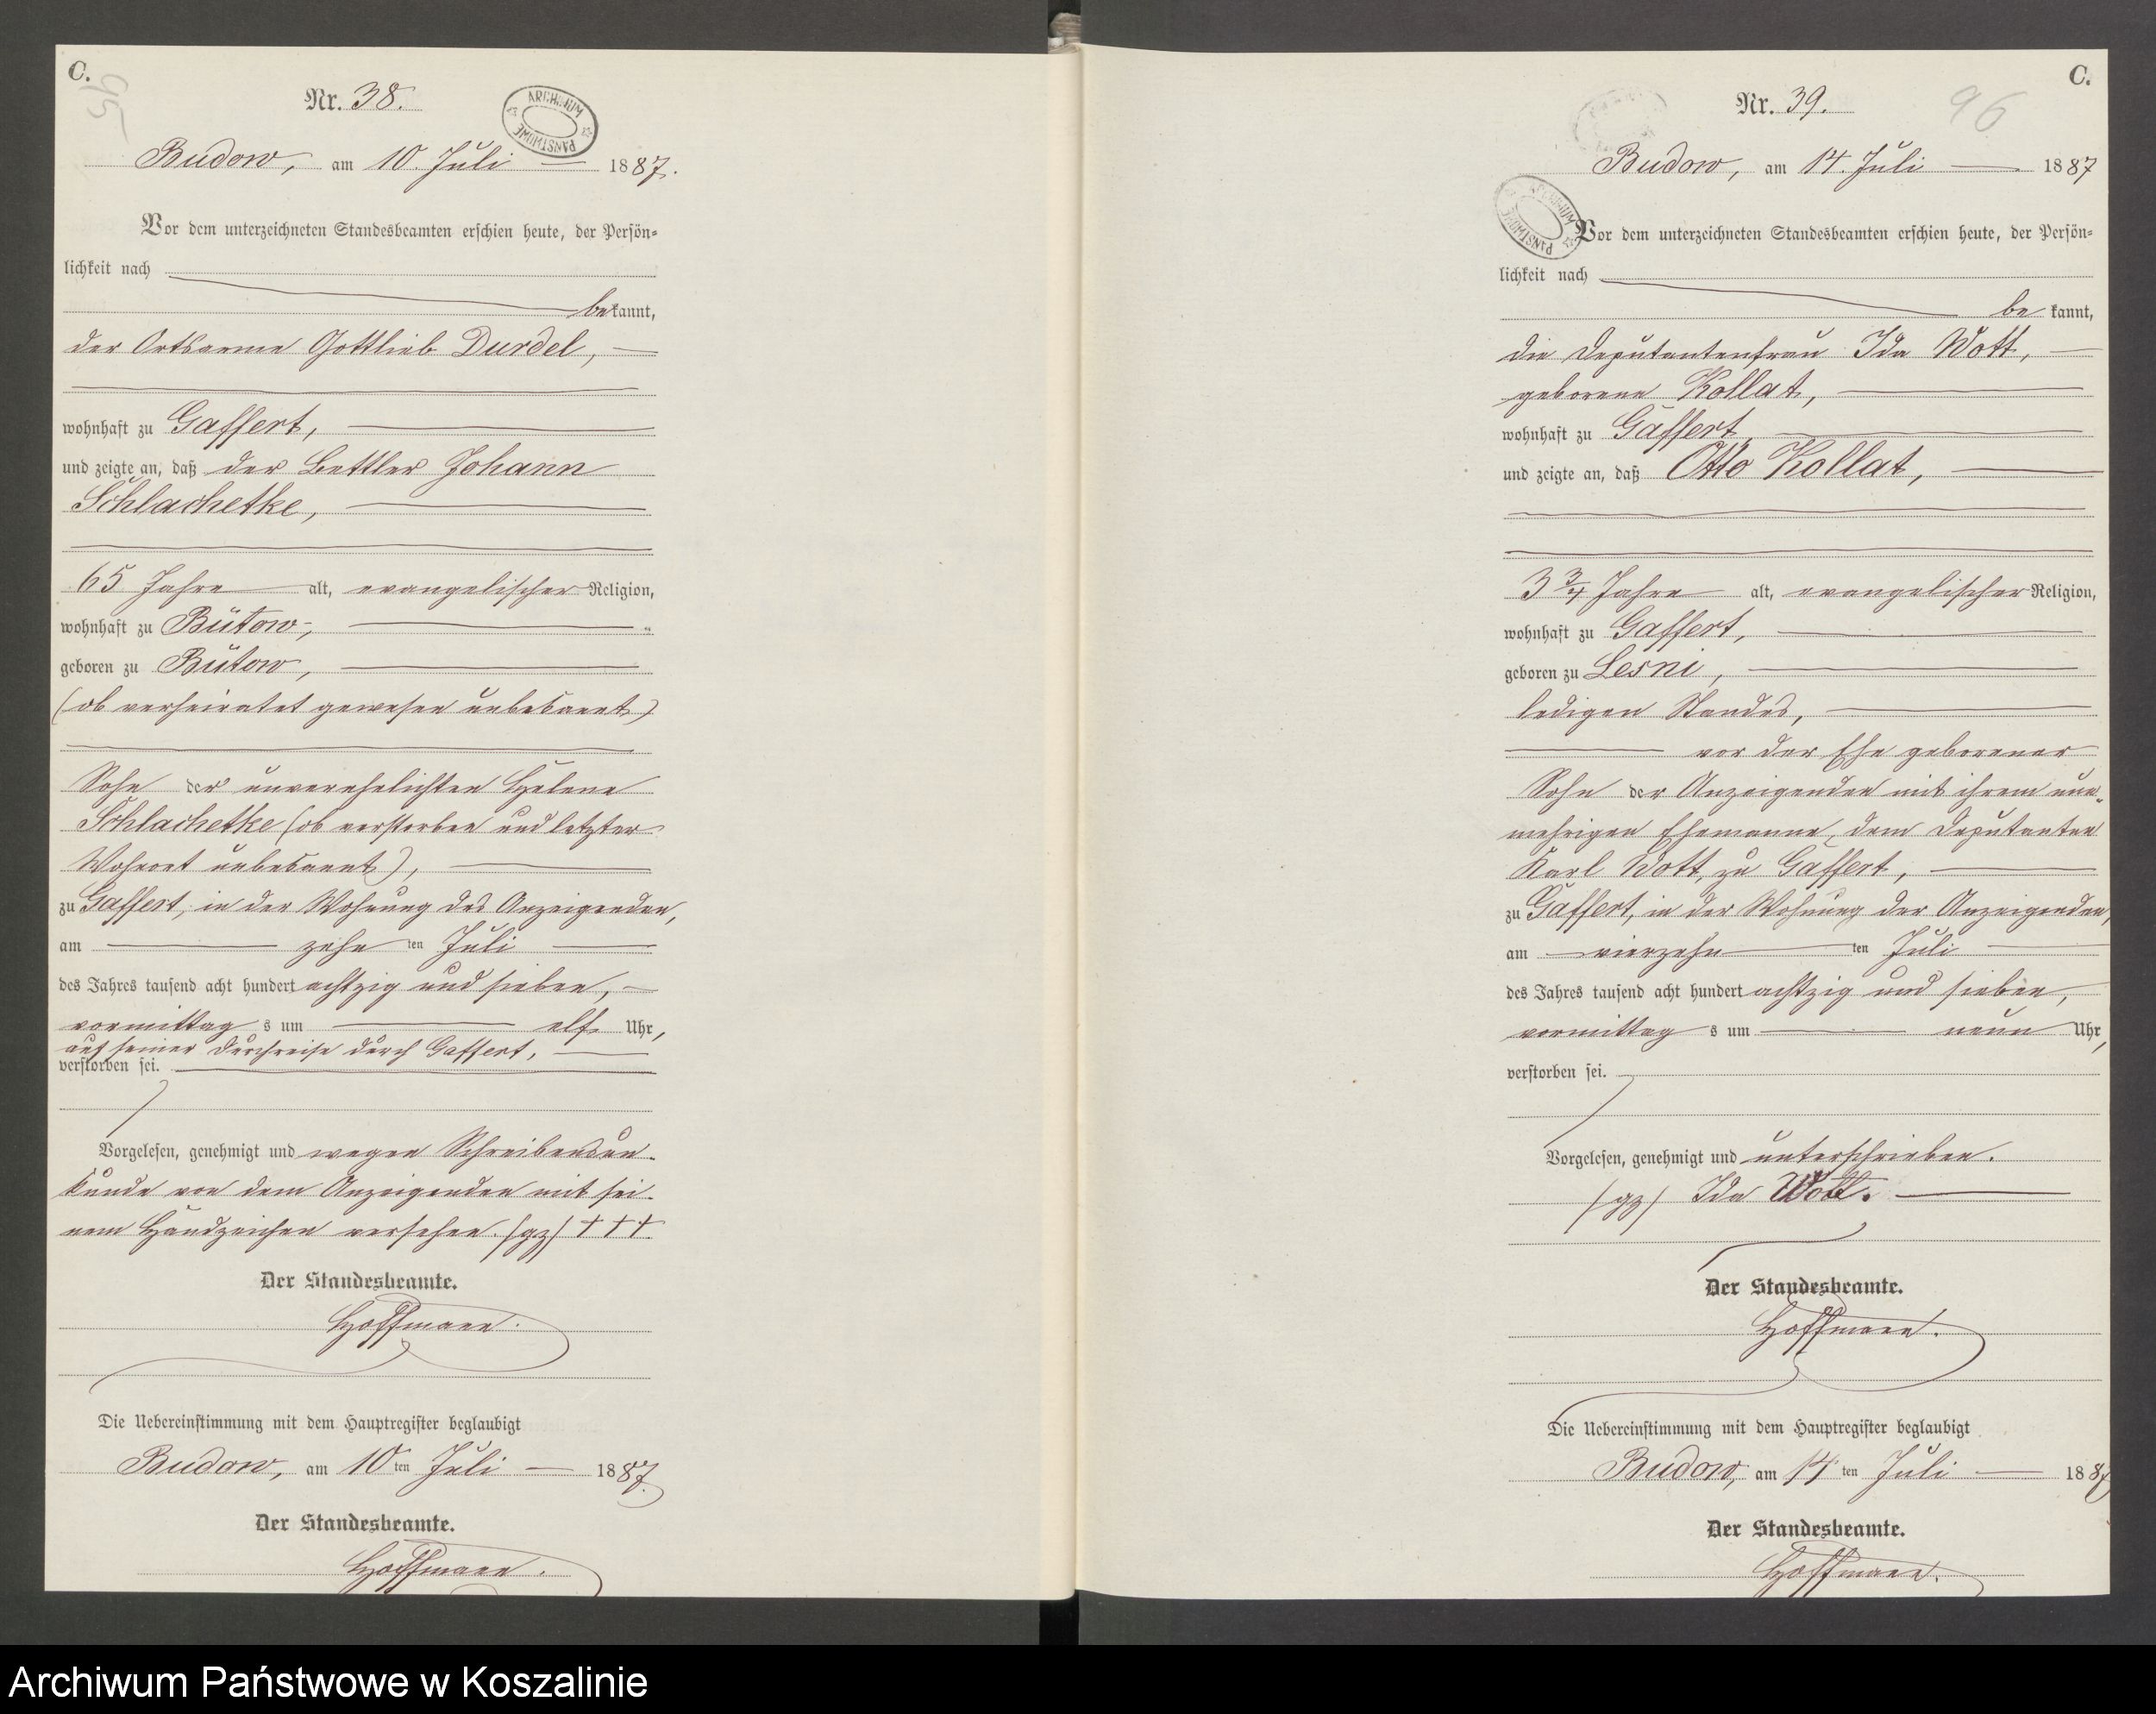 C.
95
Nr. 38.
ARCHIWUM PAŃSTWOWE
Budow, am 10. Juli 1887.
Vor dem unterzeichneten Standesbeamten erschien heute, der Persön-
lichkeit nach
bekannt,
der Ortsarme Gottlieb Durdel,
wohnhaft zu Gaffert,
und zeigte an, daß der Bettler Johann
Schlachetke,
65 Jahre alt, evangelischer Religion,
wohnhaft zu Bütow,
geboren zu Bütow,
(ob verheiratet gewesen unbekannt)
Sohn der unverehelichten Helene
Schlachetke (ob verstorben und letzter
Wohnort unbekannt),
zu Gaffert, in der Wohnung des Anzeigenden,
am zehn ten Juli
des Jahres tausend acht hundert achtzig und sieben,
vormittag s um elf Uhr,
auf seiner Durchreise durch Gaffert,
verstorben sei.
Vorgelesen, genehmigt und wegen Schreibensun-
kunde von dem Anzeigenden mit sei-
nem Handzeichen versehen. (gz) +++
Der Standesbeamte.
Hoffmann.
Die Uebereinstimmung mit dem Hauptregister beglaubigt
Budow, am 10ten Juli 1887.
Der Standesbeamte.
Hoffmann.
C.
96
Nr. 39.
Budow, am 14. Juli 1887
ARCHIWUM PAŃSTWOWE
Vor dem unterzeichneten Standesbeamten erschien heute, der Persön-
lichkeit nach
be kannt,
die Deputantenfrau Ida Wott,
geborene Kollat,
wohnhaft zu Gaffert,
und zeigte an, daß Otto Kollat,
3 3/4 Jahre alt, evangelischer Religion,
wohnhaft zu Gaffert,
geboren zu Lesni,
ledigen Standes,
vor der Ehe geborener
Sohn der Anzeigenden mit ihrem nun-
mehrigen Ehemanne, dem Deputanten
Karl Wott, zu Gaffert,
zu Gaffert, in der Wohnung der Anzeigenden,
am vierzehn ten Juli
des Jahres tausend acht hundert achtzig und sieben,
vormittag s um neun Uhr,
verstorben sei.
Vorgelesen, genehmigt und unterschrieben.
(gz) Ida Wott.
Der Standesbeamte.
Hoffmann.
Die Uebereinstimmung mit dem Hauptregister beglaubigt
Budow, am 14 ten Juli 1887
Der Standesbeamte.
Hoffmann.
Archiwum Państwowe w Koszalinie